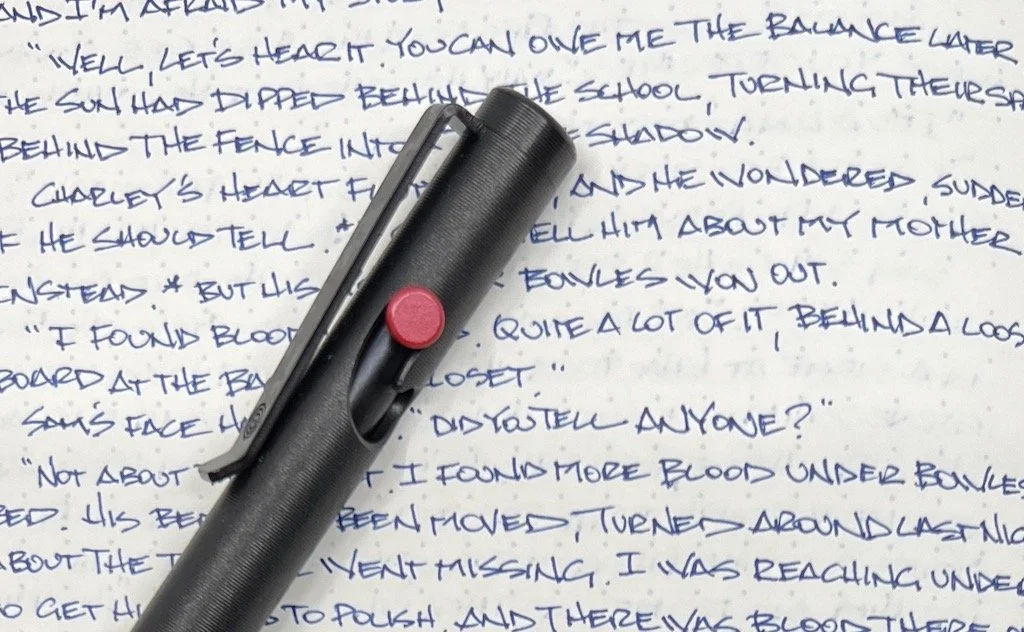 AND I'M AFRAID MY
"WELL, LET'S HEAR IT. YOU CAN OWE ME THE BALANCE LATER
THE SUN HAD DIPPED BEHIND THE SCHOOL, TURNING THEIR
BEHIND THE FENCE INTO SHADOW.
CHARLEY'S HEART AND HE WONDERED,
IF HE SHOULD TELL * TELL HIM ABOUT MY MOTHER
INSTEAD.* BUT HIS BOWLES WON OUT.
"I FOUND BLOOD. QUITE A LOT OF IT, BEHIND A
BOARD AT THE
"DID YOU TELL ANYONE?"
SAM'S FACE
"NOT ABOUT I FOUND MORE BLOOD UNDER
BED. HIS BEEN MOVED, TURNED AROUND LAST
ABOUT THE WENT MISSING. I WAS REACHING
TO GET TO POLISH, AND THERE WAS BLOOD THERE